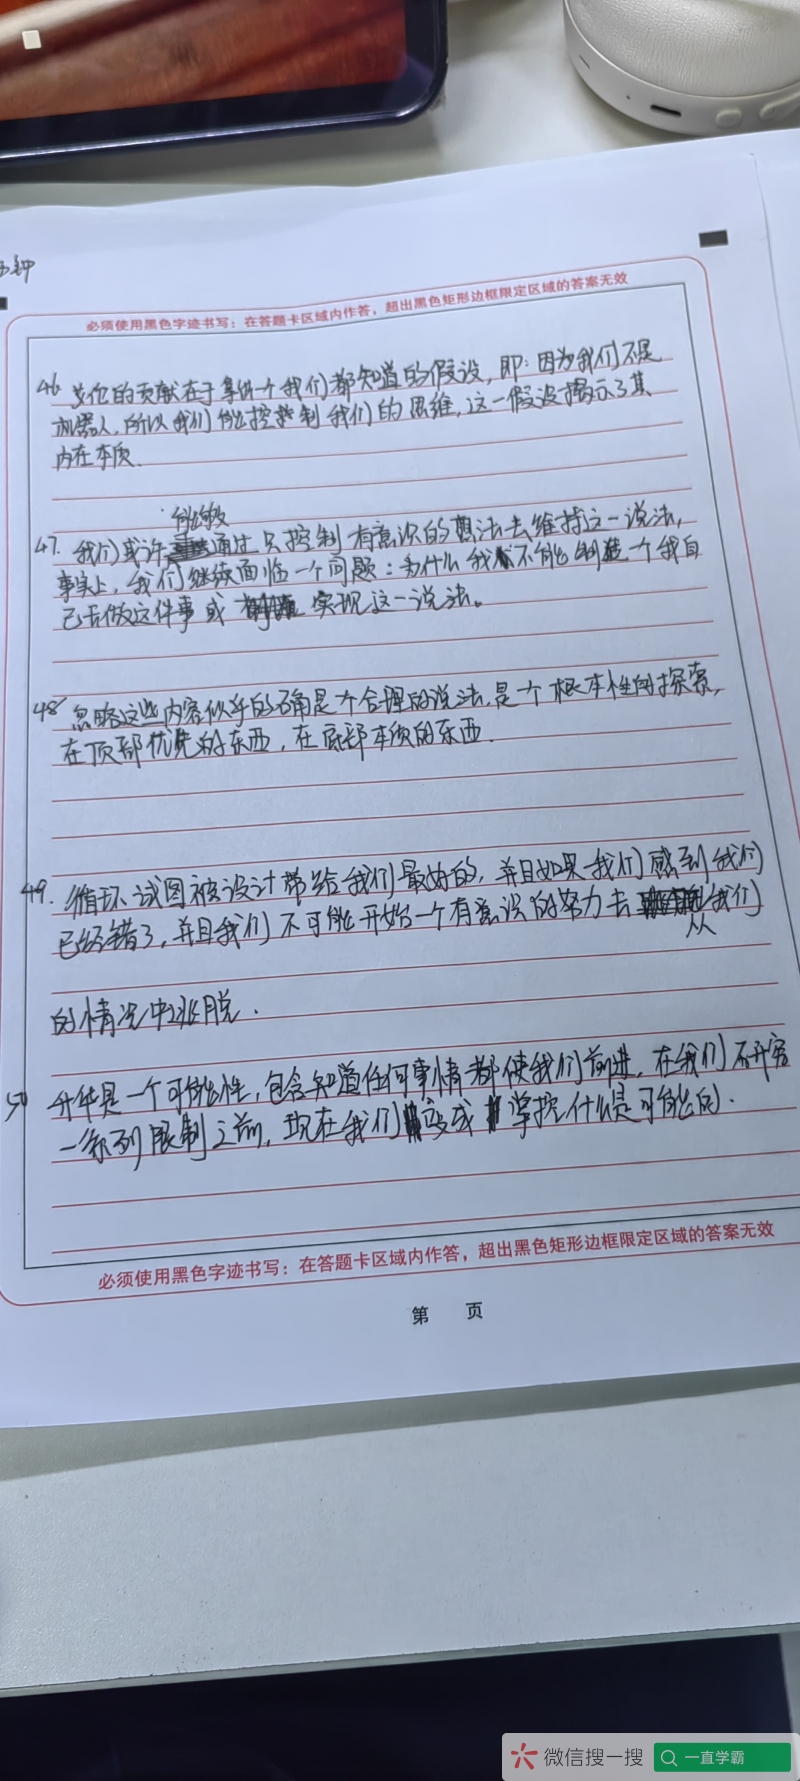 必须使用黑色字迹书写：在答题卡区域内作答，超出黑色矩形边框限定区域的答案无效
46 艾伦的贡献在于拿出一个我们都知道的假设，即：因为我们不是
机器人，所以我们能控制我们的思维，这一假设揭示了其
内在本质.
能够
47. 我们或许通过只控制有意识的想法去维持这一说法，
事实上，我们继续面临一个问题：为什么我不能制造一个我自
己去做这件事或实现这一说法。
48 忽略这些内容似乎的确是个合理的说法，是一个根本性的探索，
在顶部优先的东西，在底部本质的东西.
49. 循环试图被设计带给我们最好的，并且如果我们感到我们
已经错了，并且我们不可能开始一个有意识的努力去从我们
的情况中逃脱.
50 升华是一个可能性，包含知道任何事情都使我们前进，在我们不研究
一系列限制之前，现在我们变成掌控什么是可能的.
必须使用黑色字迹书写：在答题卡区域内作答，超出黑色矩形边框限定区域的答案无效
第 页
微信搜一搜 一直学霸